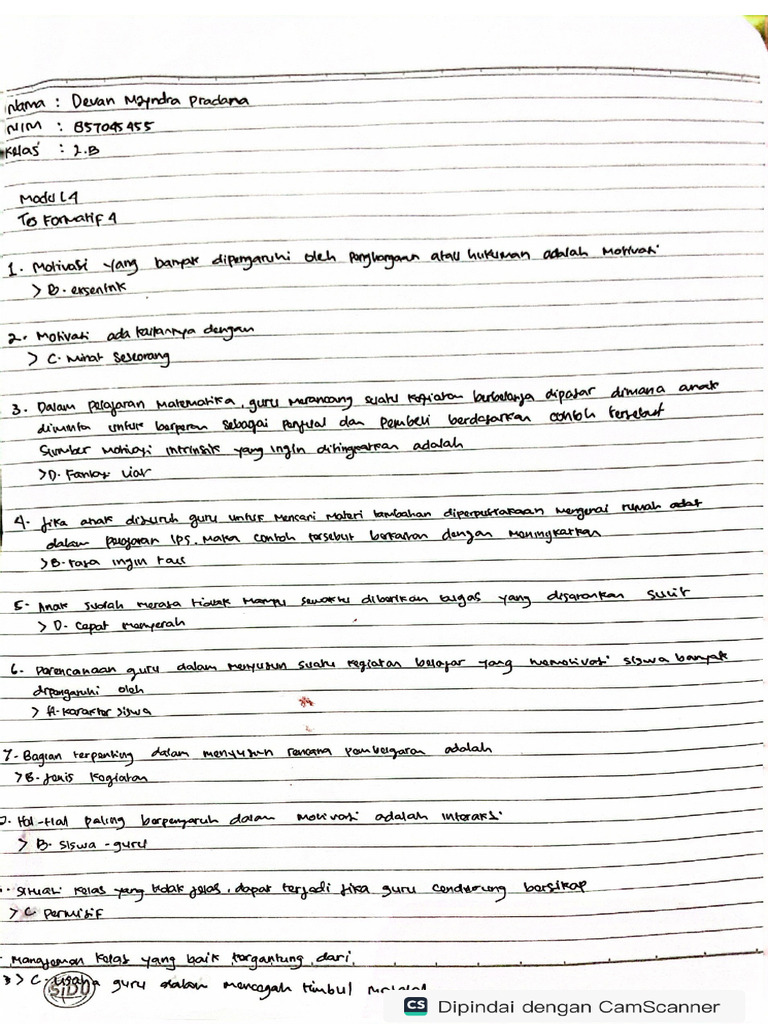 Nama : Devan Mayndra Pradana
NIM : 857045455
Kelas : 2.B
Modul 4
Tes Formatif 4
1. Motivasi yang banyak dipengaruhi oleh penghargaan atau hukuman adalah motivasi
> B. eksentrik
2. Motivasi ada kaitannya dengan
> C. Minat Seseorang
3. Dalam pelajaran Matematika, guru merancang suatu kegiatan berbelanja dipasar dimana anak
diminta untuk berperan sebagai penjual dan pembeli berdasarkan contoh tersebut
Sumber motivasi intrinsik yang ingin ditingkatkan adalah
> D. Fantasi liar
4. Jika anak disuruh guru untuk mencari materi tambahan diperpustakaan mengenai rumah adat
dalam pelajaran IPS. Maka contoh tersebut berkaitan dengan meningkatkan
> B. rasa ingin tau
5. Anak sudah merasa tidak mampu sewaktu diberikan tugas yang disarankan sulit
> D. Cepat menyerah
6. Perencanaan guru dalam menyusun suatu kegiatan belajar yang memotivasi siswa banyak
dipengaruhi oleh
> A. karakter siswa
7. Bagian terpenting dalam menyusun rencana pembelajaran adalah
> B. Jenis kegiatan
Hal-Hal paling berpengaruh dalam motivasi adalah interaksi
> B. siswa - guru
Situasi kelas yang tidak jelas, dapat terjadi jika guru cenderung bersikap
> C. Permisif
Manajemen kelas yang baik tergantung dari
> C. usaha guru dalam mencegah timbul
SIDU
CS Dipindai dengan CamScanner